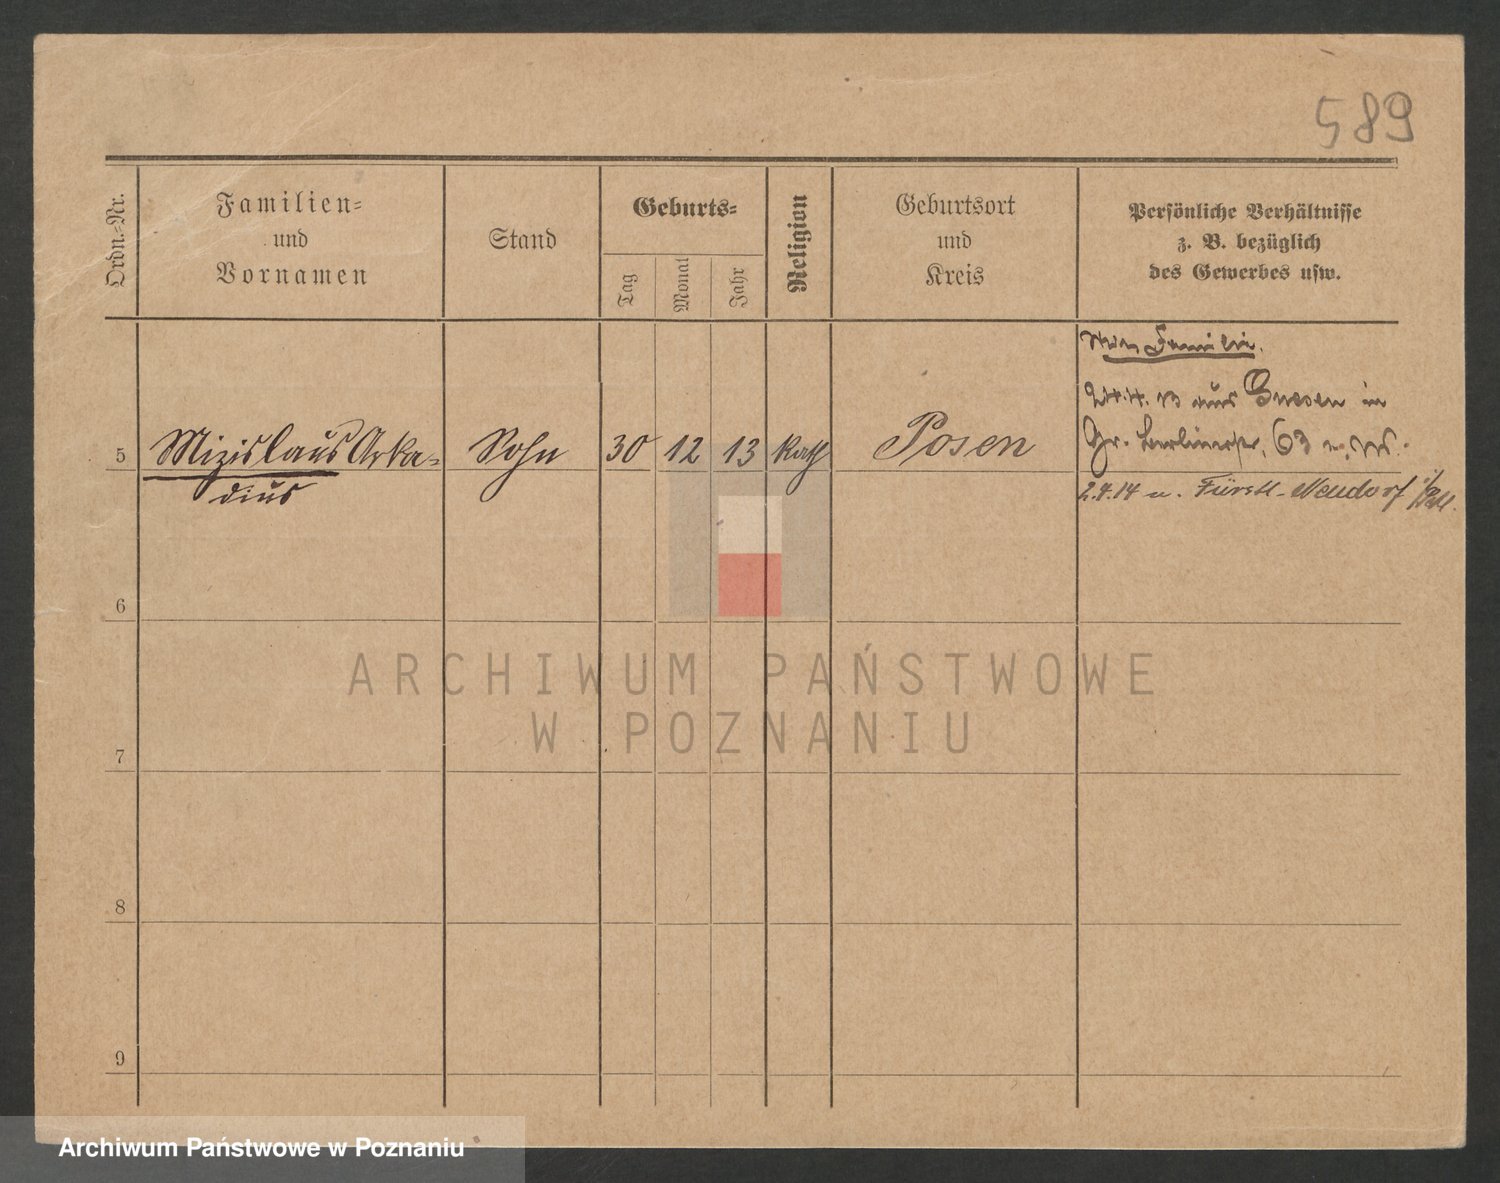 589
Ordn.-Nr.
Familien-
und
Vornamen
Stand
Geburts-
Tag
Monat
Jahr
Religion
Geburtsort
und
Kreis
Persönliche Verhältnisse
z. B. bezüglich
des Gewerbes usw.
Familie.
aus Gnesen in
5 Mizislaus Arka- Sohn 30 12 13 Kath Posen Gr. Berlinerstr. 63
dius
2.4.14 n. Fürstl-Neudorf
6
7
8
9
ARCHIWUM PAŃSTWOWE
W POZNANIU
Archiwum Państwowe w Poznaniu